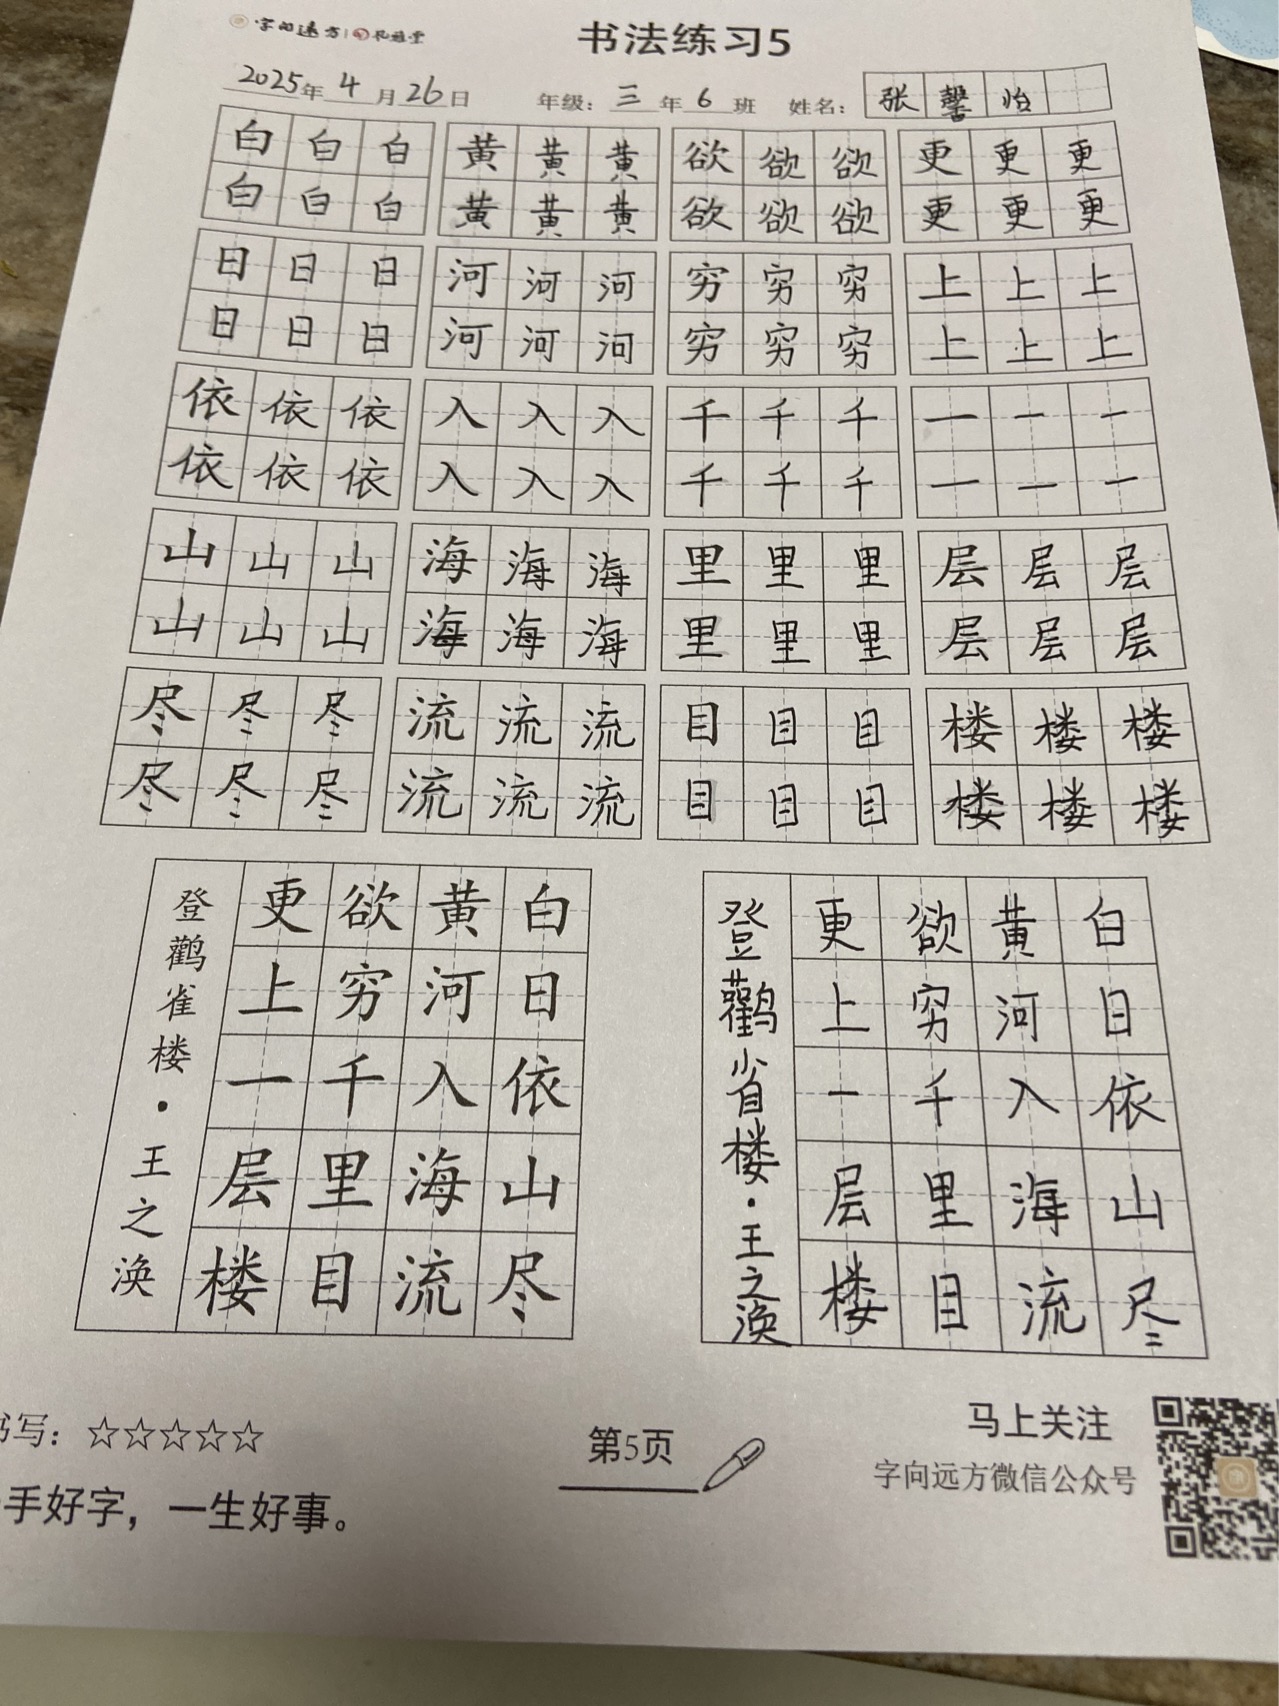 字向远方 礼雅堂
书法练习5
2025年 4月26日 年级：三年6班 姓名：张馨怡
白白白 黄黄黄 欲欲欲 更更更
白白白 黄黄黄 欲欲欲 更更更
日日日 河河河 穷穷穷 上上上
日日日 河河河 穷穷穷 上上上
依依依 入入入 千千千 一一一
依依依 入入入 千千千 一一一
山山山 海海海 里里里 层层层
山山山 海海海 里里里 层层层
尽尽尽 流流流 目目目 楼楼楼
尽尽尽 流流流 目目目 楼楼楼
白日依山尽
黄河入海流
欲穷千里目
更上一层楼
登鹳雀楼·王之涣
白日依山尽
黄河入海流
欲穷千里目
更上一层楼
登鹳省楼·王之涣
书写：☆☆☆☆☆
手好字，一生好事。
第5页
马上关注
字向远方微信公众号